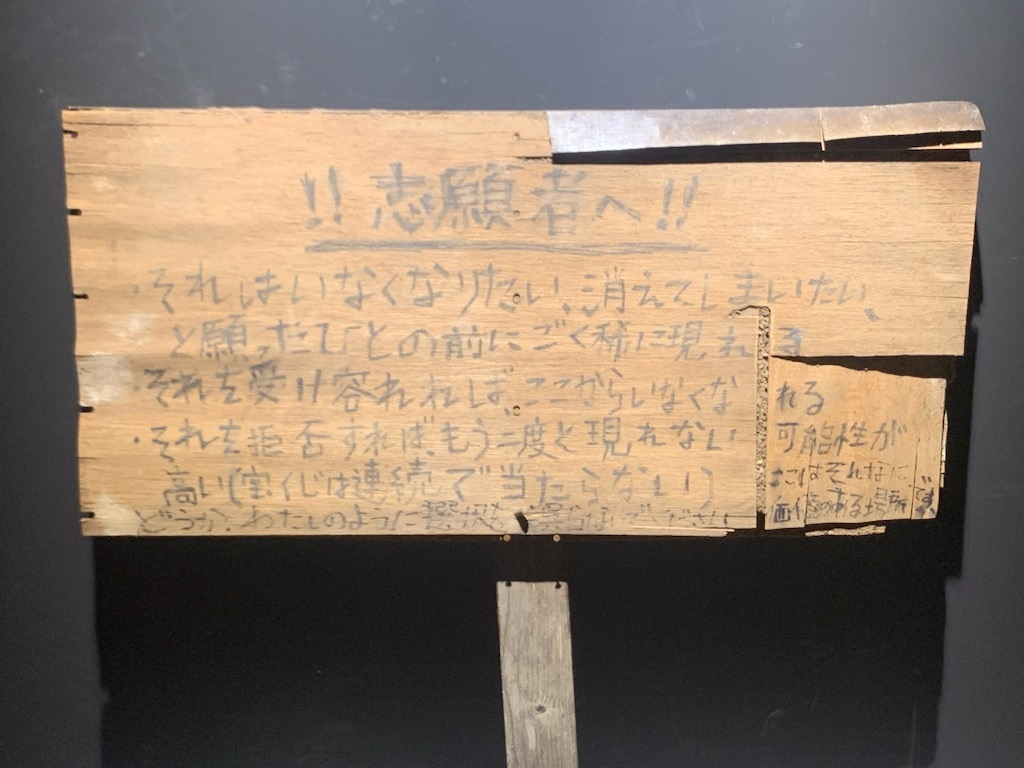 !!志願者へ!!
・それはいなくなりたい、消えてしまいたい、
と願ったひとの前にごく稀に現れる
・それを受け容れれば、ここからいなくなれる
・それを拒否すれば、もう二度と現れない可能性が
高い(宝くじは連続で当たらない)
どうか、わたしのように選択を誤らないでください
ここはそんなに
価値のある場所